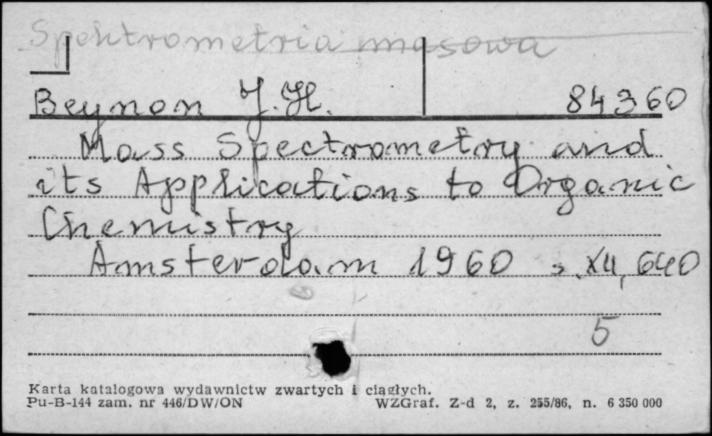 Spektrometria masowa
Beynon J.H. 84360
Mass Spectrometry and
its Applications to Organic
Chemistry
Amsterdam 1960 s. XII, 640
5
Karta katalogowa wydawnictw zwartych i ciągłych.
Pu-B-144 zam. nr 446/DW/ON WZGraf. Z-d 2, z. 255/86, n. 6 350 000